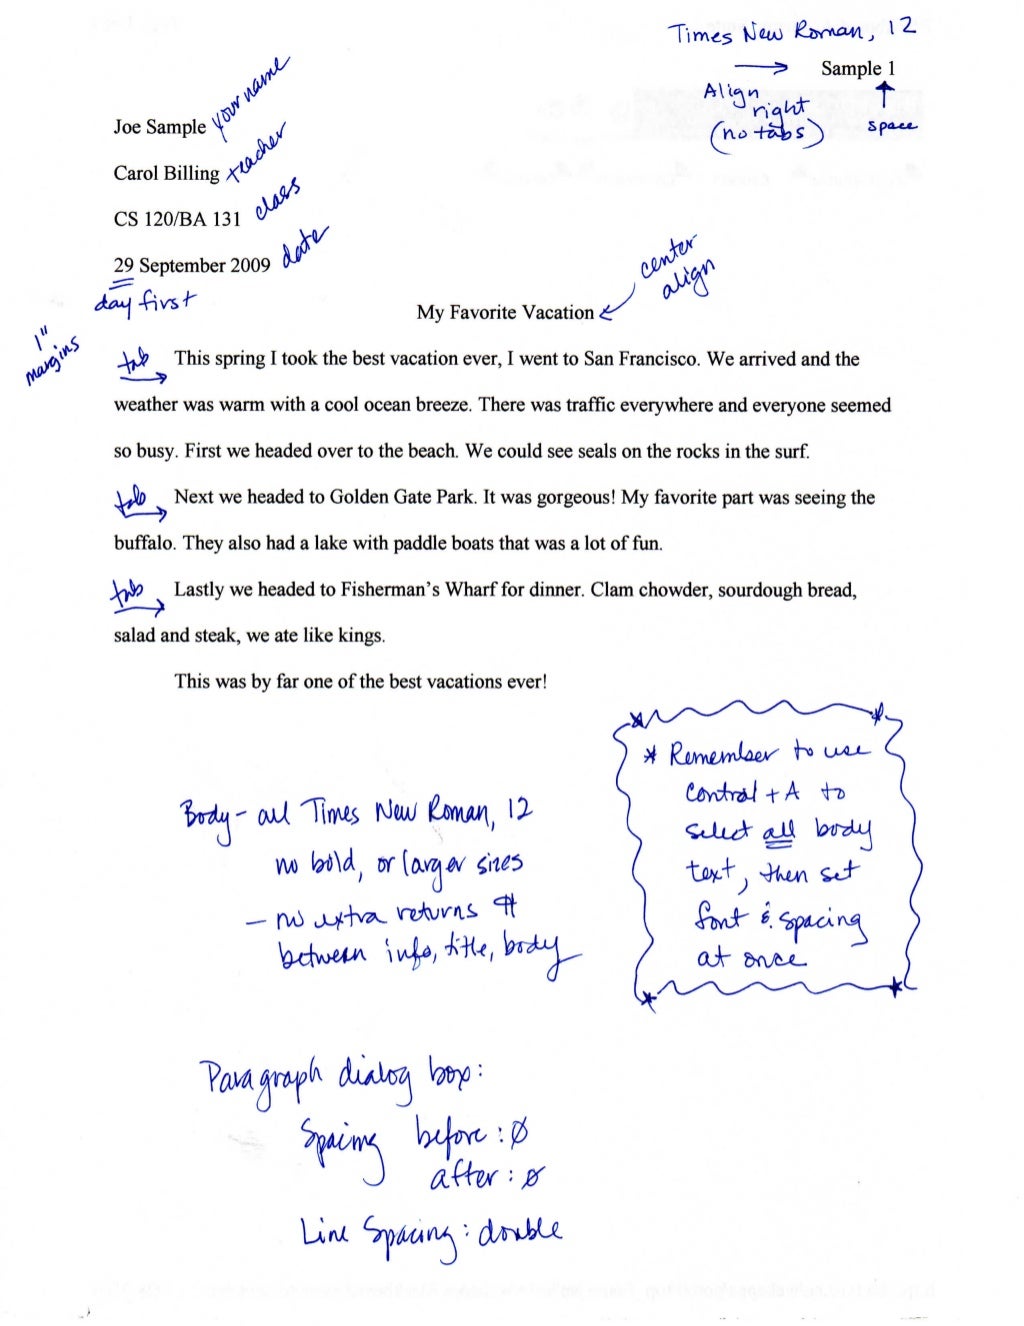 Times New Roman, 12
→ Sample 1
Align right (no tabs)
↑ space
Joe Sample your name
Carol Billing teacher
CS 120/BA 131 class
29 September 2009 date
day first
center align
My Favorite Vacation
1" margins
tab This spring I took the best vacation ever, I went to San Francisco. We arrived and the
weather was warm with a cool ocean breeze. There was traffic everywhere and everyone seemed
so busy. First we headed over to the beach. We could see seals on the rocks in the surf.
tab Next we headed to Golden Gate Park. It was gorgeous! My favorite part was seeing the
buffalo. They also had a lake with paddle boats that was a lot of fun.
tab Lastly we headed to Fisherman's Wharf for dinner. Clam chowder, sourdough bread,
salad and steak, we ate like kings.
This was by far one of the best vacations ever!
* Remember to use
Control + A to
select all body
text, then set
font & spacing
at once
Body - all Times New Roman, 12
no bold, or larger sizes
- no extra returns ¶
between info, title, body
Paragraph dialog box:
Spacing before: Ø
after: Ø
Line Spacing: double